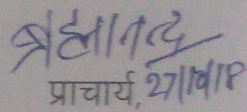 ब्रह्मानन्द
प्राचार्य, 27/10/18